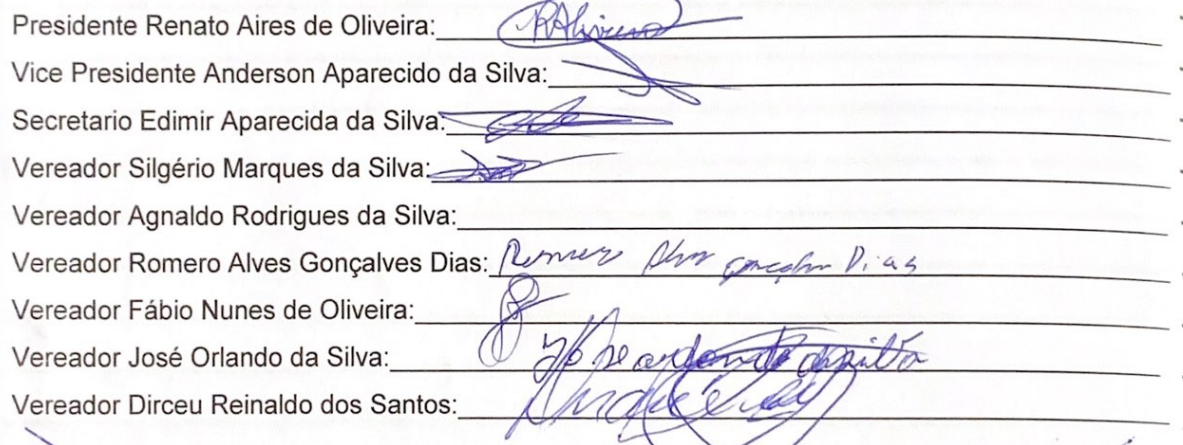 Presidente Renato Aires de Oliveira: RAliveira
Vice Presidente Anderson Aparecido da Silva:
Secretario Edimir Aparecida da Silva:
Vereador Silgério Marques da Silva:
Vereador Agnaldo Rodrigues da Silva:
Vereador Romero Alves Gonçalves Dias: Romero Alves Gonçalves Dias
Vereador Fábio Nunes de Oliveira:
Vereador José Orlando da Silva: José orlando da silva
Vereador Dirceu Reinaldo dos Santos: